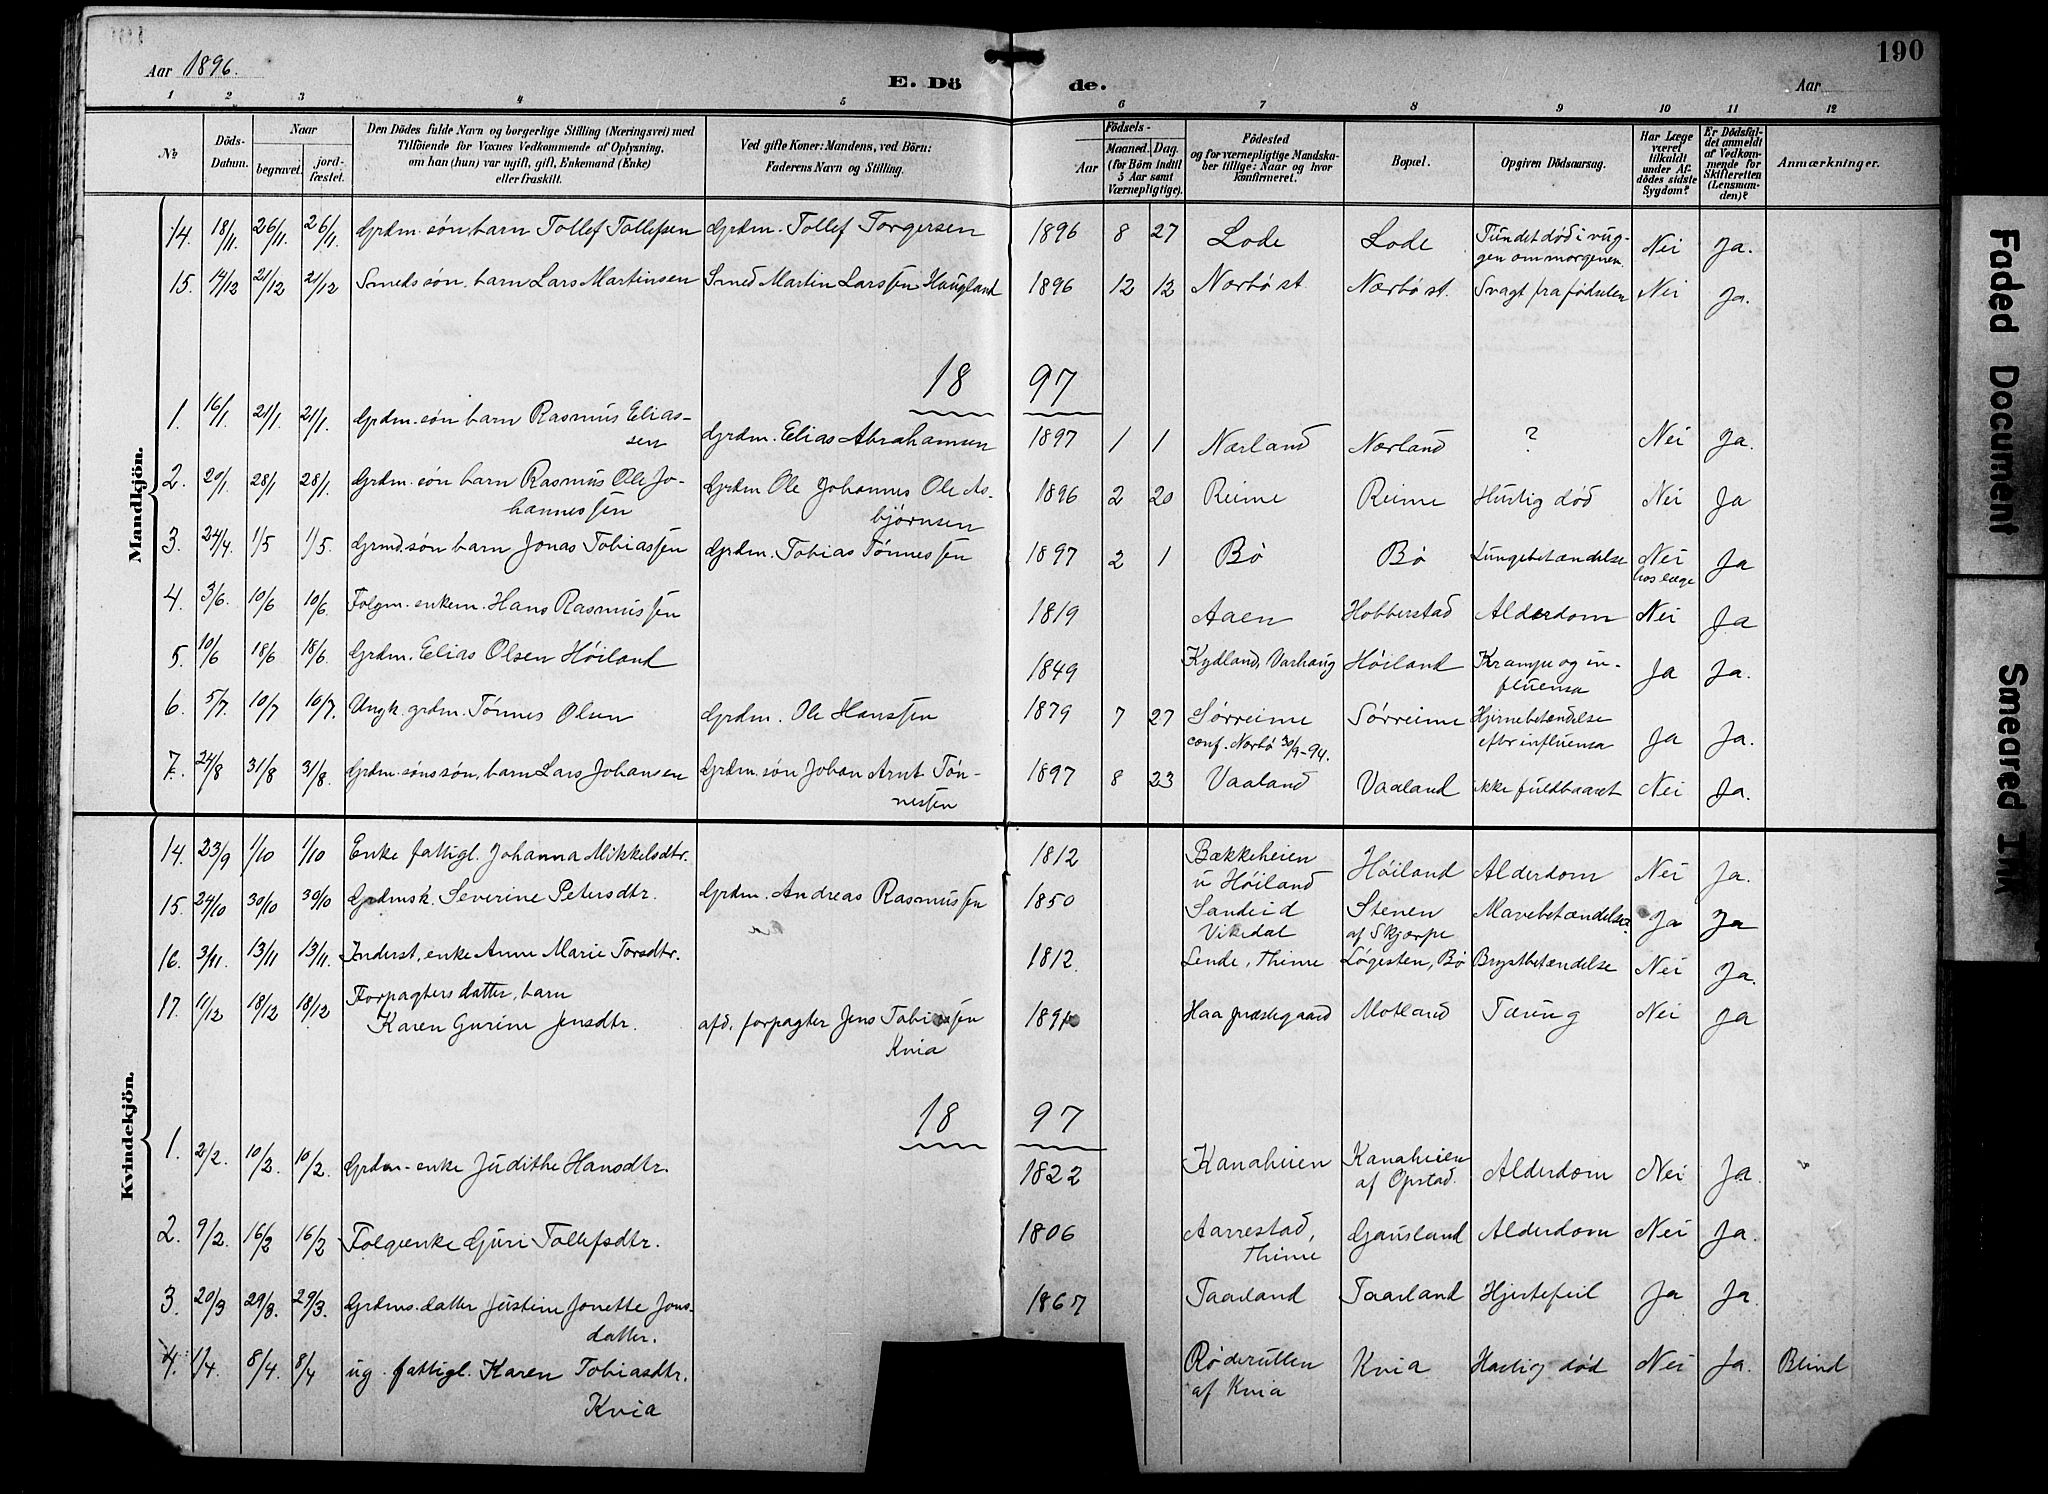 190
Aar 1896.
E. Dö de.
Aar
1 2 3 4 5 6 7 8 9 10 11 12
№
Döds-Datum.
Naar
begravet.
jord-fæstet.
Den Dödes fulde Navn og borgerlige Stilling (Næringsvei) med
Tilföiende for Voxnes Vedkommende af Oplysning,
om han (hun) var ugift, gift, Enkemand (Enke)
eller fraskilt.
Ved gifte Koner: Mandens, ved Börn:
Faderens Navn og Stilling.
Födsels-
Aar
Maaned. Dag.
(for Börn indtil
5 Aar samt
Værnepligtige).
Födested
og for værnepligtige Mandska-
ber tillige: Naar og hvor
konfirmeret.
Bopæl.
Opgiven Dödsaarsag.
Har Læge
været
tilkaldt
under Af-
dödes sidste
Sygdom?
Er Dödsfal-
det anmeldt
af Vedkom-
mende for
Skifteretten
(Lensman-
den)?
Anmærkninger.
Mandkjön.
14. 18/11. 26/11. 26/11. Grdm. søn, barn Tollef Tollefsen Grdm. Tollef Torgersen 1896 8 27 Lode Lode Fundet død i vug- Nei Ja.
gen om morgenen.
15. 14/12 21/12 21/12 Smeds søn, barn Lars Martinsen Smed Martin Larssen Haugland 1896 12 12 Nærbø st. Nærbø st. Svagt fra fødselen Nei Ja.
18 97
1. 16/1. 21/1. 21/1. Grdm. søn barn Rasmus Elias-
sen Grdm. Elias Abrahamsen 1897 1 1 Nærland Nærland ? Nei Ja.
2. 20/1. 28/1 28/1. Grdm. søn barn Rasmus Ole Jo- Grdm Ole Johannes Ole As- 1896 2 20 Reime Reime Hurtig død Nei Ja
hannessen bjørnsen
3. 24/4. 1/5 1/5. Grmd. søn barn Jonas Tobiassen Grdm. Tobias Tønnessen 1897 2 1 Bø Bø Lungebetændelse Nei Ja
hos læge
4. 3/6. 10/6 10/6. Folgm. enkem. Hans Rasmussen 1819 Aaen Hobberstad Alderdom Nei Ja
5. 10/6 18/6 18/6. Grdm. Elias Olsen Høiland 1849 Kydland, Varhaug Høiland Krampe og in- Ja Ja.
fluensa
6. 5/7. 10/7 10/7. Ungk. grdm. Tønnes Olsen Grdm. Ole Hanssen 1879 7 27 Sørreime Sørreime Hjernebetændelse Ja Ja.
conf. Nærbø 30/9-94. efter influensa
7. 24/8 31/8 31/8. Grdm. søns søn, barn Lars Johansen Grdm. søn Johan Arnt Tøn- 1897 8 23 Vaaland Vaaland ikke fuldbaaret Nei Ja.
nessen
Kvindekjön.
14. 23/9 1/10 1/10 Enke fattigl. Johanna Mikkelsdtr. 1812 Bækkeheien Høiland Alderdom Nei Ja.
u Høiland
15. 24/10 30/10 30/10 Grdmsk. Severine Petersdtr. Grdm. Andreas Rasmussen 1850 Sandeid Stenen Mavebetændelse Ja Ja
Vikedal af Skjærpe
16. 3/11. 13/11 13/11. Inderst, enke Anne Marie Torsdtr. 1812. Lende, Thime Løgesten, Bø Brystbetændelse Nei Ja.
17. 11/12 18/12 18/12 Forpagters datter, barn
Karen Gurine Jensdtr. afd. forpagter Jens Tobiassen Haa præstegaard Motland Tæring Nei Ja
Kvia
18 97
1. 2/2. 10/2. 10/2. Grdm-enke Judithe Hansdtr. 1822 Kanaheien Kanaheien Alderdom Nei Ja.
af Opstad.
2. 9/2. 16/2 16/2 Folgeenke Guri Tollefsdtr. 1806 Aarrestad, Gausland Alderdom Nei Ja.
Thime
3. 20/3 29/3. 29/3. Grdms. datter Justine Jonette Jons- 1867 Taarland Taarland Hjertefeil Ja Ja.
datter.
4. 1/4. 8/4. 8/4 ug. fattigl. Karen Tobiasdtr. Røderutlen Kvia Hastig død Nei Ja. Blind
Kvia af Kvia
Faded Document
Smeared Ink